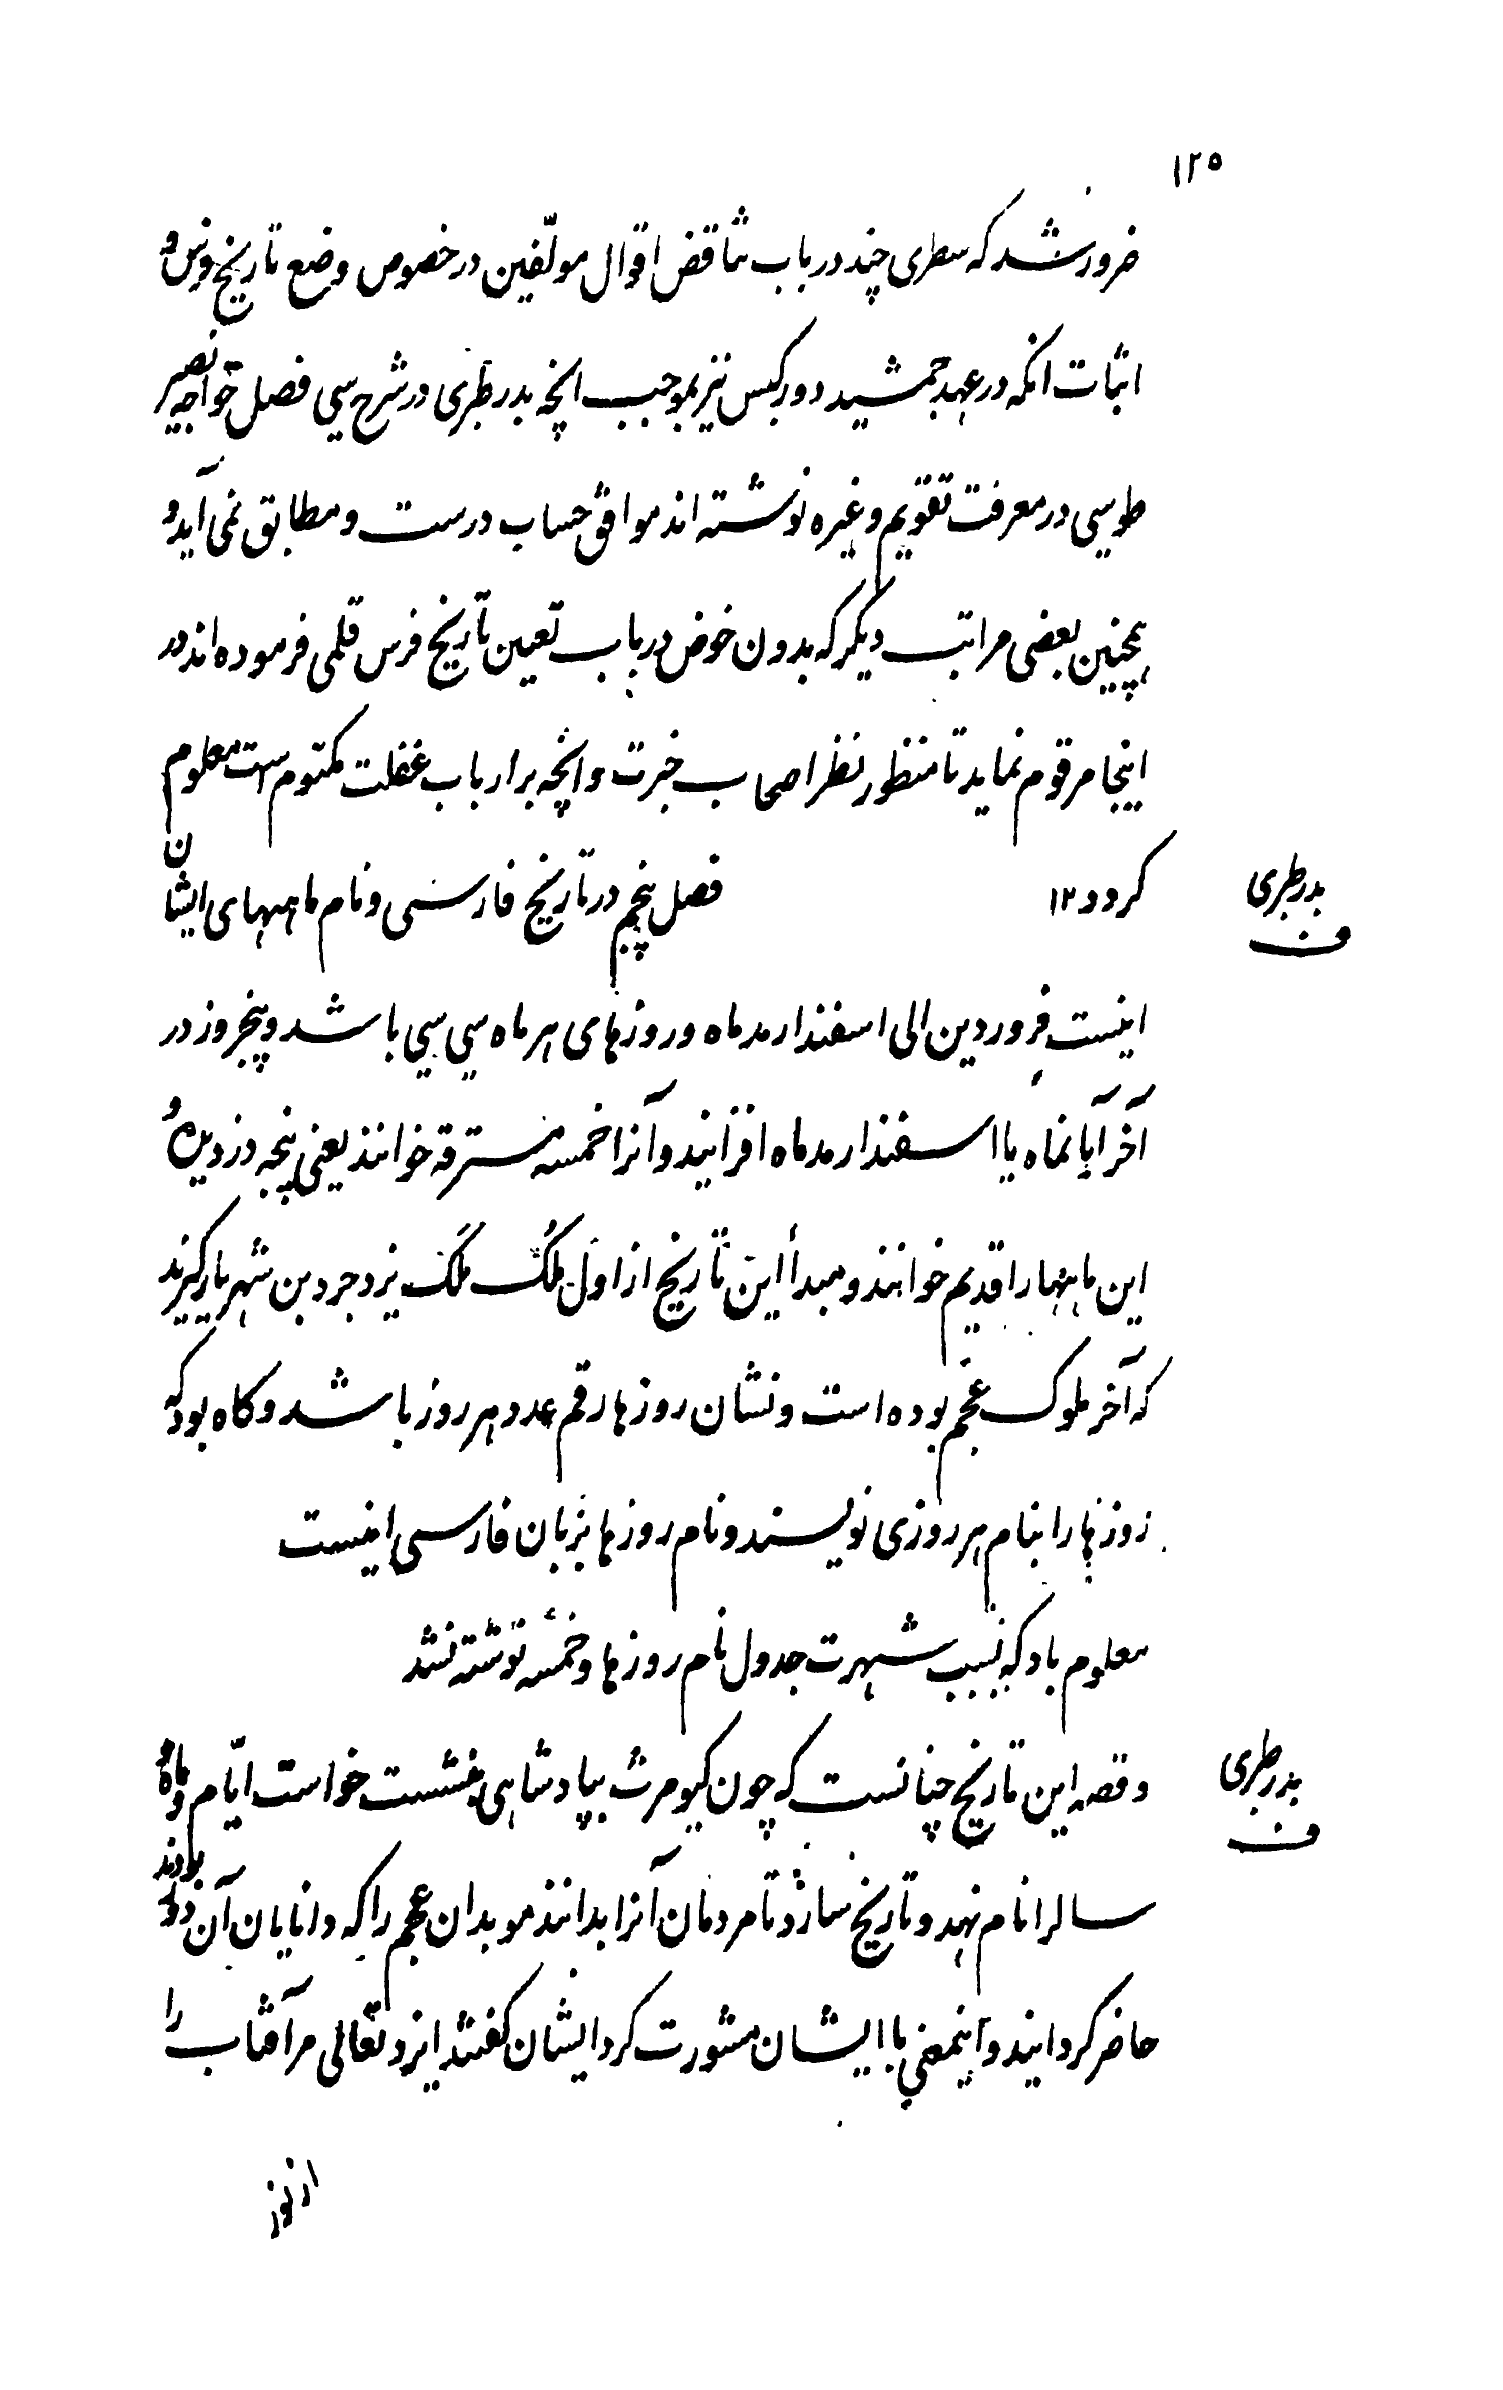 ۱۲۵
ضرور شد که سطری چند در باب تناقض اقوال مولّفین در خصوص وضع تاریخ فرس و
اثبات انکه در عهد جمشید دور کبس نیز بموجب انچه بدر طبری در شرح سی فصل خواجه نصیر
طوسی در معرفت تقویم و غیره نوشته اند موافق حساب درست و مطابق نمی آید و
همچنین بعضی مراتب دیکر که بدون خوض در باب تعین تاریخ فرس قلمی فرموده اند در
اینجا مرقوم نماید تا منظور نظر اصحاب خبرت و انچه بر ارباب غفلت مکتوم است معلوم
کردد ۱۲ فصل پنجم در تاریخ فارسی و نام ماههای ایشان
بدر طبری
ف
اینست فروردین الی اسفندارمد ماه و روزهای هر ماه سی سی باشد و پنجروز در
آخر آبانماه یا اسفندارمد ماه افزایند و آنرا خمسه مسترقه خوانند یعنی پنجه دزدیده و
این ماهها را قدیم خوانند و مبدأ این تاریخ از اول مُلک ملک یزدجرد بن شهریار کیرند
که آخر ملوک عجم بوده است و نشان روزها رقم عدد هر روز باشد و کاه بود که
روزها را بنام هر روزی نویسند و نام روزها بزبان فارسی اینست
معلوم باد که بسبب شهرت جدول نام روزها و خمسهٔ نوشته نشد
و قصه این تاریخ چنانست که چون کیومرث بپادشاهی بنشست خواست ایّام و ماه و
بدر طبری
ف
سالرا نام نهد و تاریخ سازد تا مردمان آنرا بدانند موبدان عجم را که دانایان آن دور بودند
حاضر کردانیند و اینمعنی با ایشان مشورت کرد ایشان کفتند ایزد تعالی مر آفتاب را
از نور